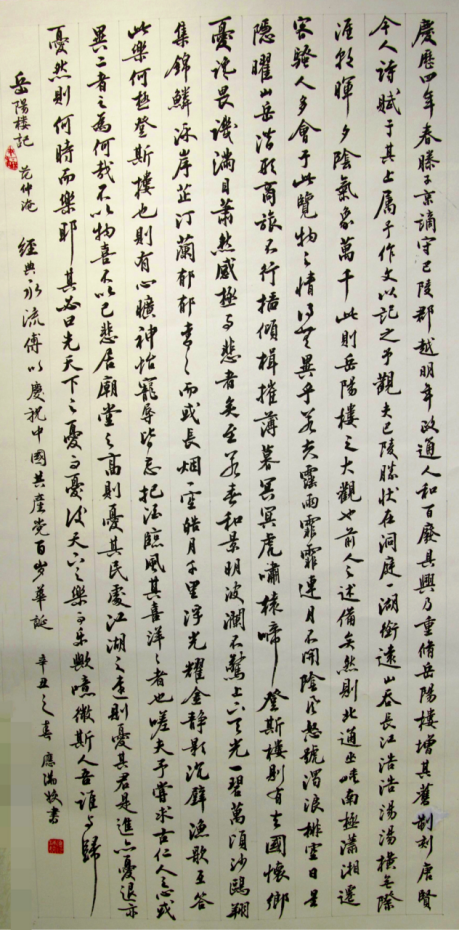 慶歷四年春滕子京謫守巴陵郡越明年政通人和百廢具興乃重脩岳陽樓增其舊制刻唐賢
今人詩賦于其上属予作文以記之予觀夫巴陵勝狀在洞庭一湖銜遠山吞長江浩浩湯湯橫無際
涯朝暉夕陰氣象萬千此則岳陽樓之大觀也前人之述備矣然則北通巫峽南極瀟湘遷
客騷人多會于此覽物之情得無異乎若夫霪雨霏霏連月不開陰風怒號濁浪排空日星
隱曜山岳潛形商旅不行檣傾楫摧薄暮冥冥虎嘯猿啼登斯樓則有去國懷鄉
憂讒畏譏滿目蕭然感極而悲者矣至若春和景明波瀾不驚上下天光一碧萬頃沙鷗翔
集錦鱗泳岸芷汀蘭郁郁青々而或長烟一空皓月千里浮光耀金靜影沉璧漁歌互答
此樂何極登斯樓也則有心曠神怡寵辱皆忘把酒臨風其喜洋々者也嗟夫予嘗求古仁人之心或
異二者之為何哉不以物喜不以己悲居廟堂之高則憂其民處江湖之遠則憂其君是進亦憂退亦
憂然則何時而樂耶其必曰先天下之憂而憂後天下之樂而樂歟噫微斯人吾誰與歸
岳陽樓記 范仲淹 經典永流傳以慶祝中國共產党百岁華誕 辛丑之春 應滿牧書